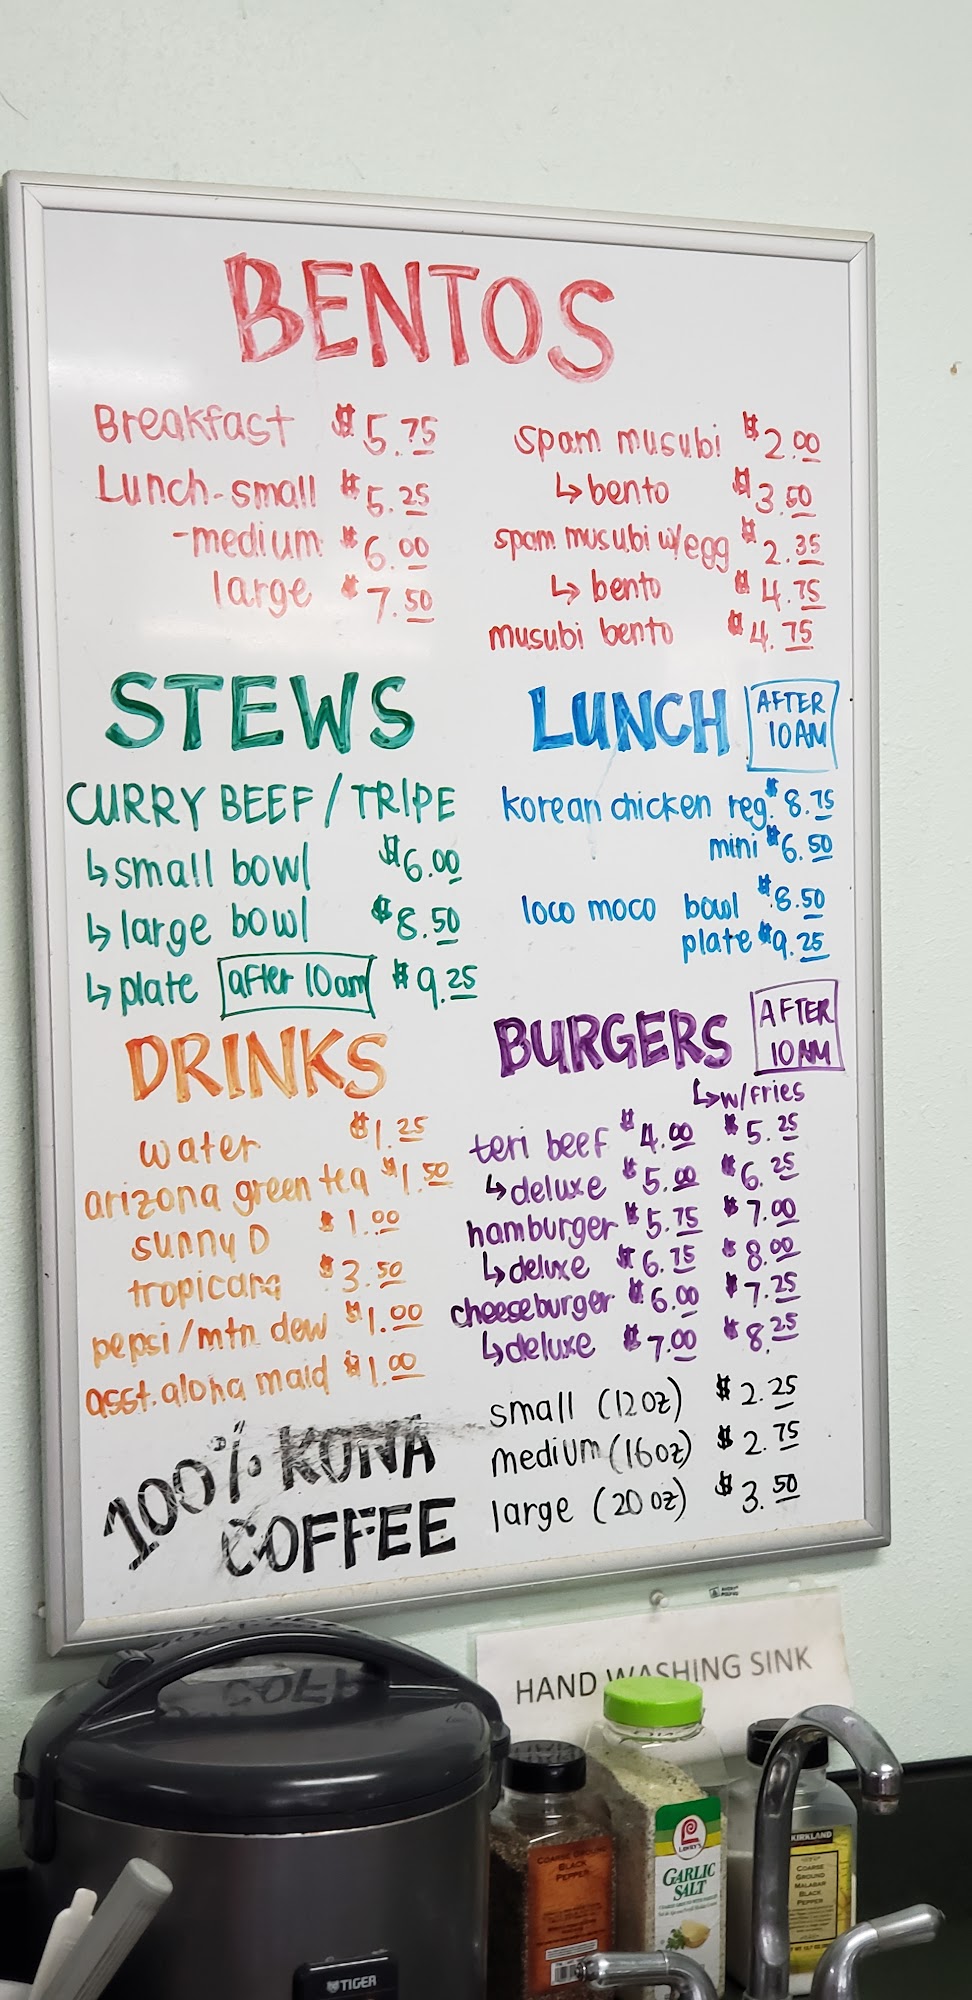 BENTOS
Breakfast $5.75
Lunch-small $5.25
-medium $6.00
large $7.50
spam musubi $2.00
↳bento $3.50
spam musubi w/egg $2.35
↳ bento $4.75
musubi bento $4.75
STEWS
CURRY BEEF/TRIPE
↳small bowl $6.00
↳large bowl $8.50
↳plate after 10am $9.25
LUNCH AFTER
10AM
korean chicken reg. $8.75
mini $6.50
loco moco bowl $8.50
plate $9.25
DRINKS
water $1.25
arizona green tea $1.50
sunny D $1.00
tropicana $3.50
pepsi/mtn dew $1.00
asst. aloha maid $1.00
BURGERS AFTER
10AM
↳w/fries
teri beef $4.00 $5.25
↳deluxe $5.00 $6.25
hamburger $5.75 $7.00
↳deluxe $6.75 $8.00
cheeseburger $6.00 $7.25
↳deluxe $7.00 $8.25
100% KONA
COFFEE
small (12oz) $2.25
medium (16oz) $2.75
large (20oz) $3.50
HAND WASHING SINK
TIGER
COARSE GROUND
BLACK
PEPPER
LAWRY'S
GARLIC
SALT
KIRKLAND
COARSE
GROUND
MALABAR
BLACK
PEPPER